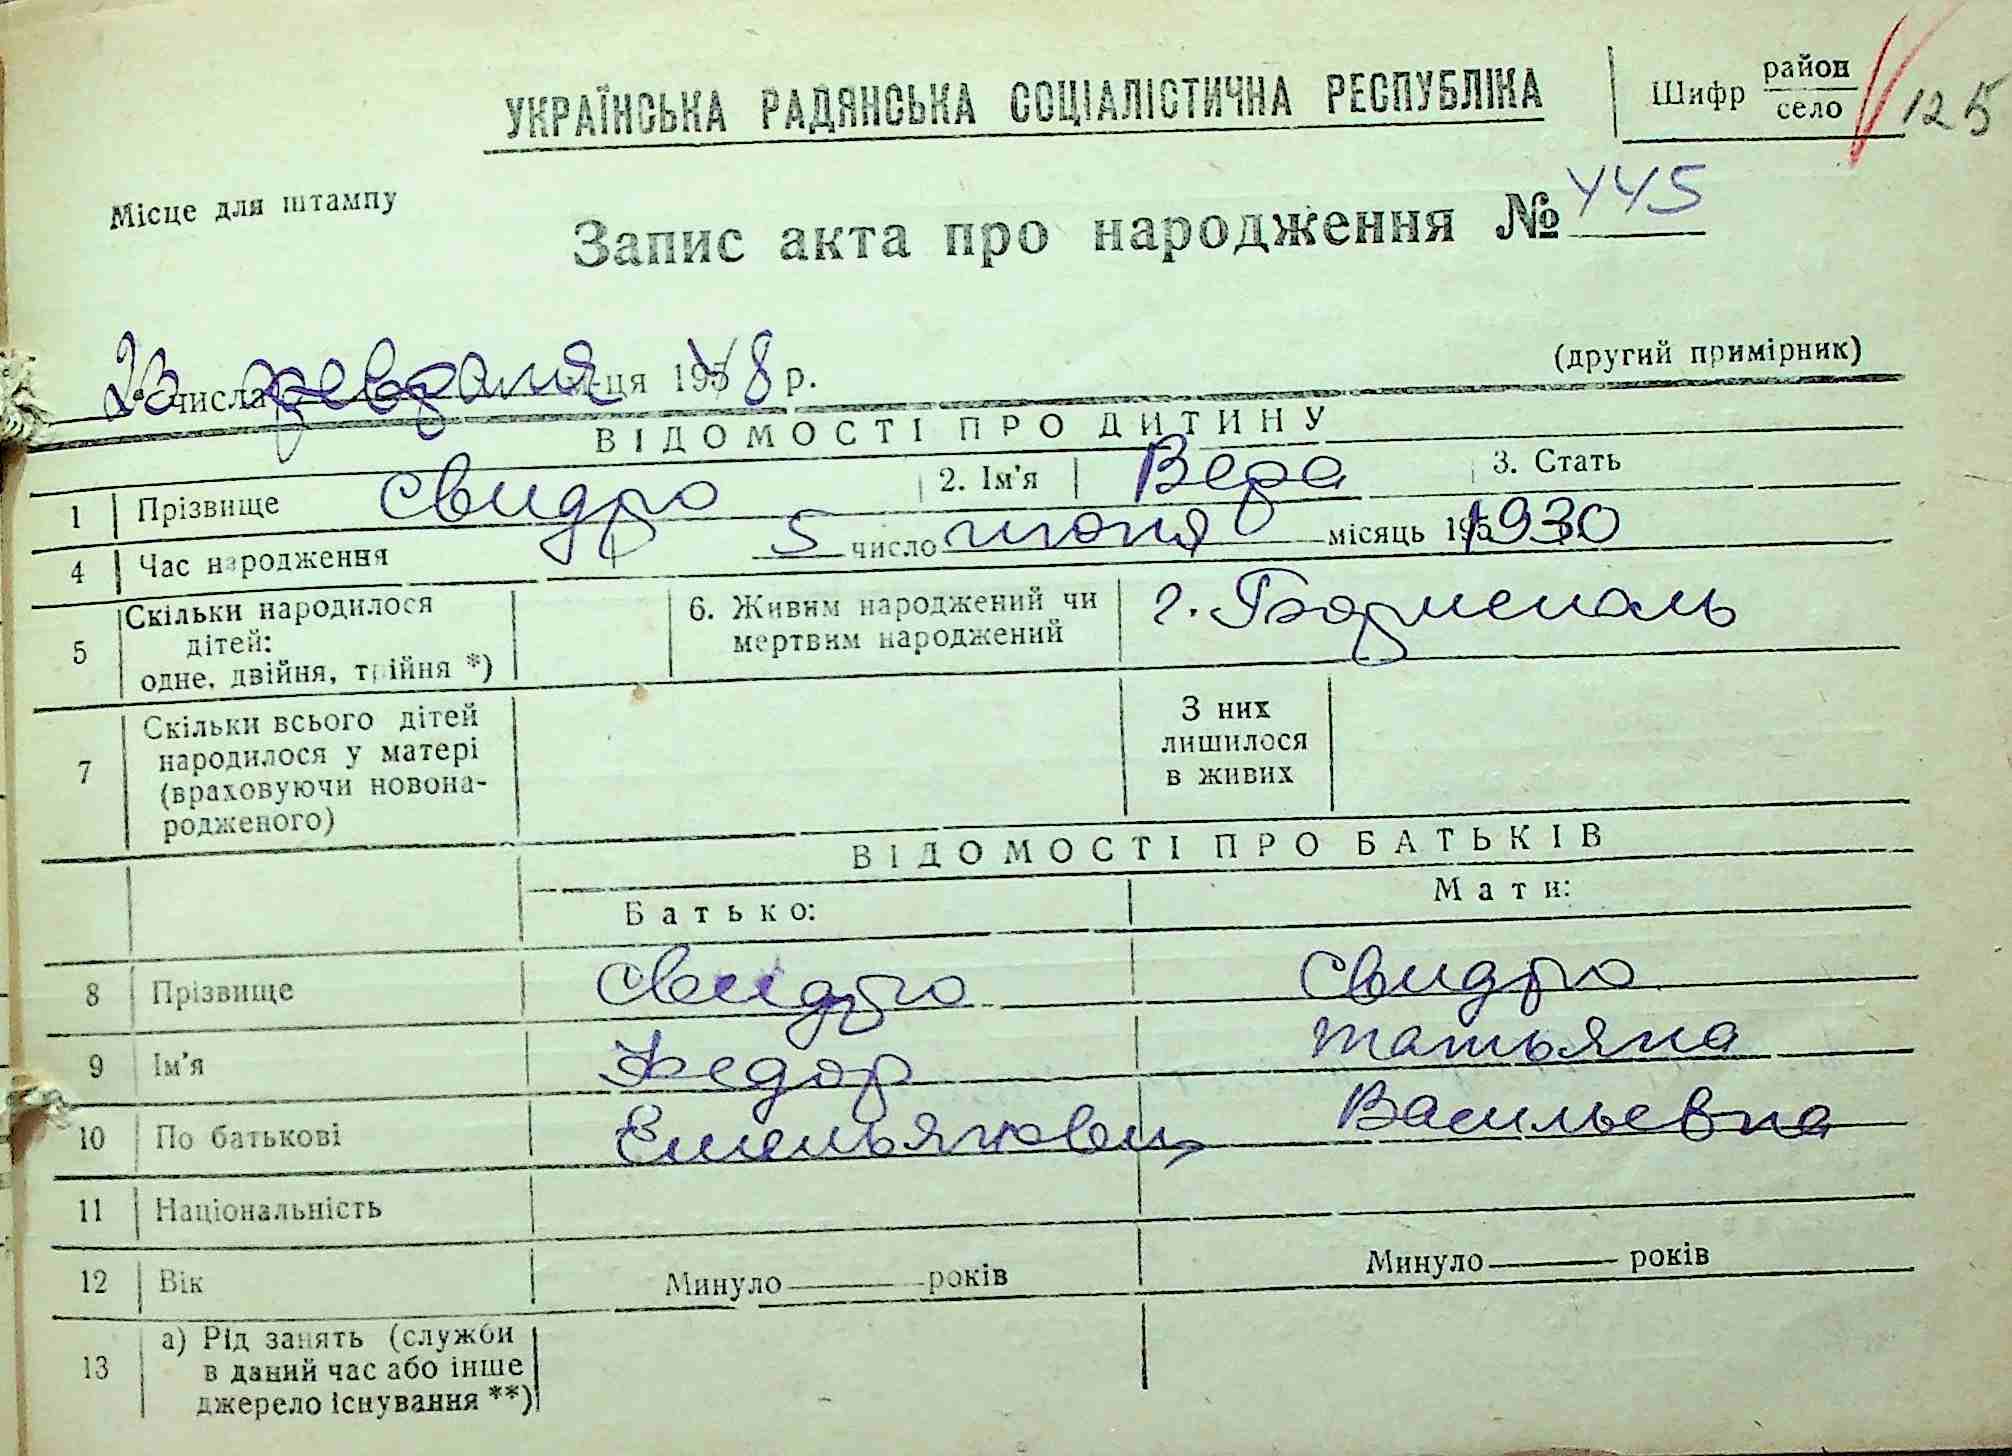 УКРАЇНСЬКА РАДЯНСЬКА СОЦІАЛІСТИЧНА РЕСПУБЛІКА
Шифр район
село 125
Місце для штампу
Запис акта про народження № 445
23 числа февраля місяця 1948 р.
(другий примірник)
ВІДОМОСТІ ПРО ДИТИНУ
1 Прізвище Свидро 2. Ім'я Вера 3. Стать
4 Час народження 5 число июня місяць 195 1930
5 Скільки народилося дітей: одне, двійня, трійня *) 6. Живим народжений чи мертвим народжений г. Борисполь
7 Скільки всього дітей народилося у матері (враховуючи новона-родженого) З них лишилося в живих
ВІДОМОСТІ ПРО БАТЬКІВ
Батько: Мати:
8 Прізвище Свидро Свидро
9 Ім'я Федор Татьяна
10 По батькові Емельянович Васильевна
11 Національність
12 Вік Минуло років Минуло років
13 а) Рід занять (служби
в даний час або інше
джерело існування **)